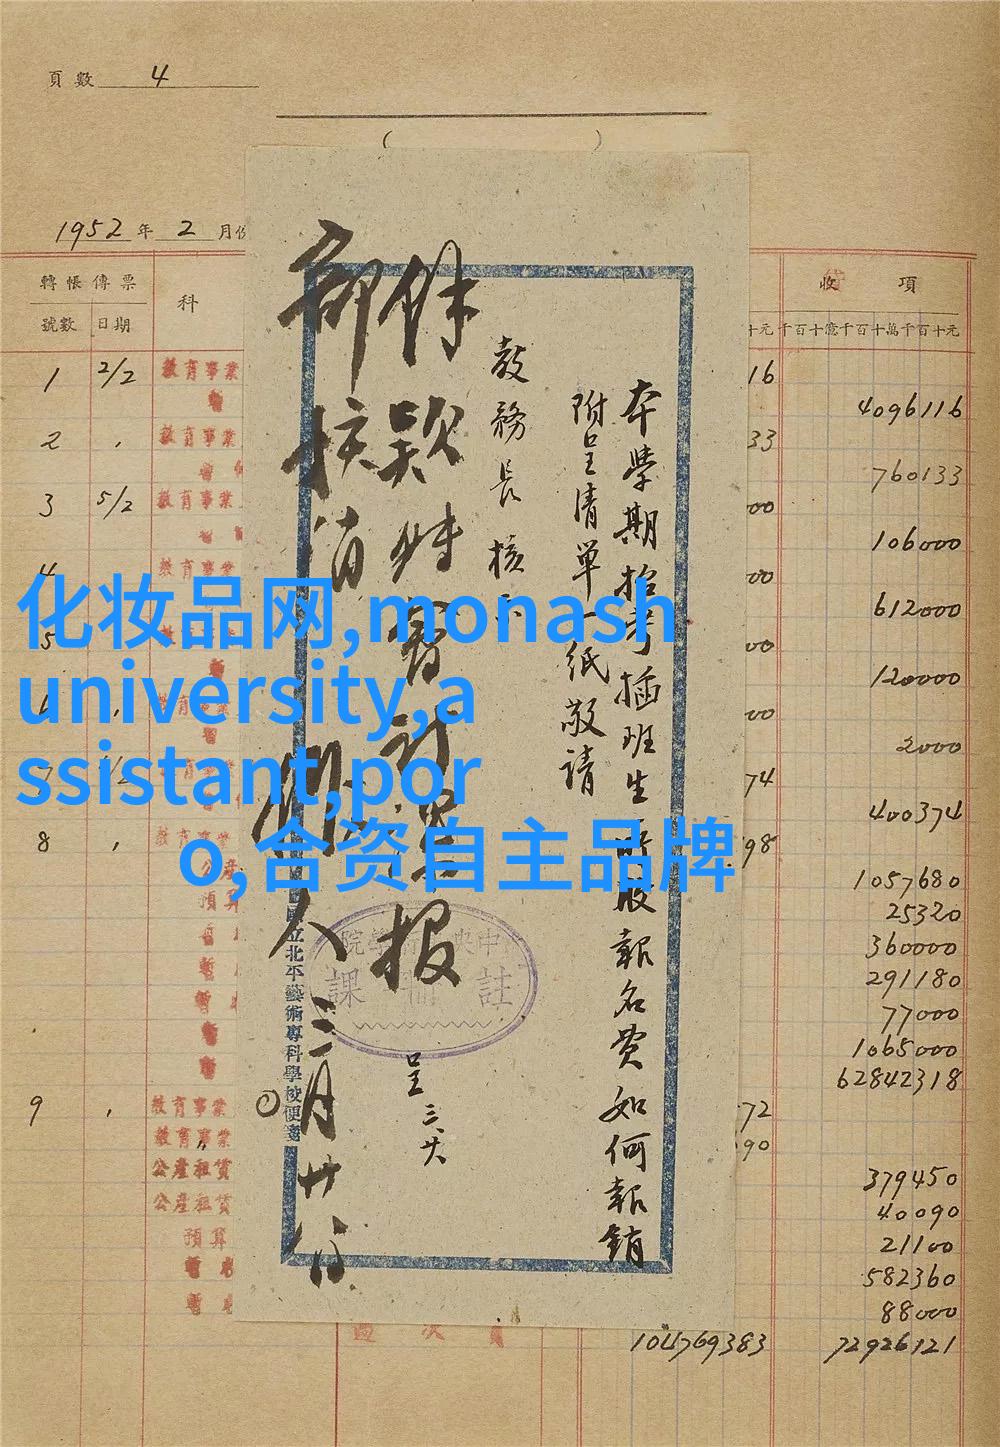 頁數 4
1952 年 2 月份
轉帳傳票
科
收 項
號數 日期
千百十億千百十萬千百十元
1 2/2 教育事業
16
4096116
2 教育事業
33
760133
3 5/2 教育事業
00
106000
4 教育
00
612000
5
00
120000
00
2000
74
400374
8
98
1057680
25320
360000
291180
77000
1065000
62842318
9 教育事業
72
教育事業
90
公產租賃
379450
公產租賃
40090
預算
21100
582360
88000
104769383
72926121
本學期招考插班生所收報名費如何報銷
附呈清單一紙敬請
教務長核示
呈 三.廿八
餘款姑會計呈報
部核消
三月廿
國立北平藝術專科學校便箋
中央美術學院
註冊課
化妆品网,monash
university,a
ssistant,por
o,合资自主品牌